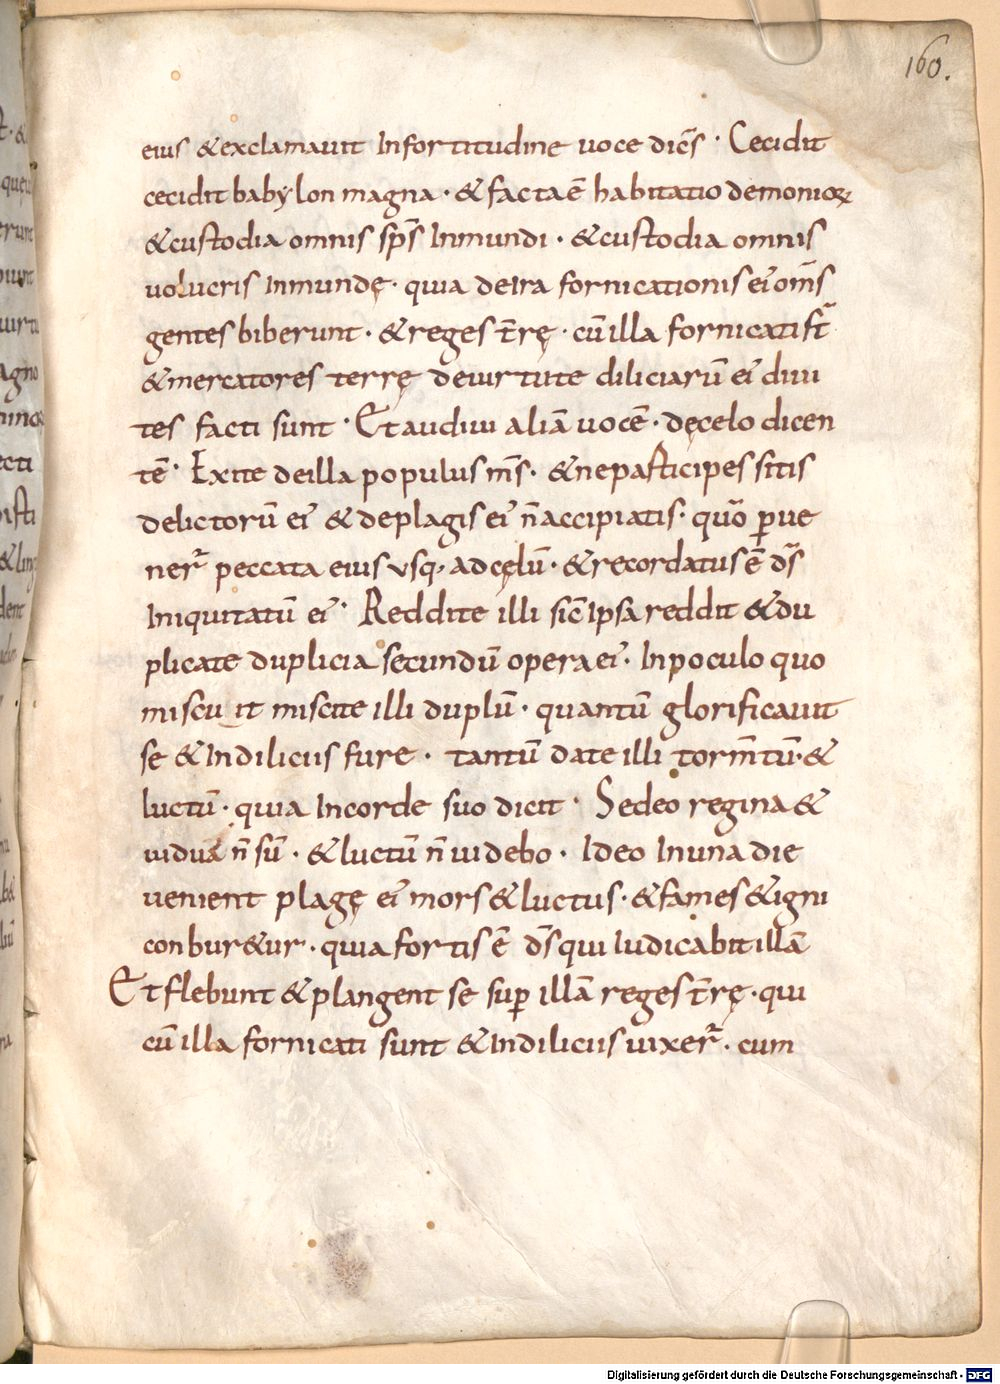 160.
eius &exclamauit Infortitudine uoce dicēs · Cecidit
cecidit babylon magna · & facta ē habitatio demonioꝝ
& custodia omnis sp̄s Inmundi · & custodia omnis
uolucris Inmundę · quia de Ira fornicationis ei' om̄s
gentes biberunt · & reges t̄rrę · cū illa fornicati st̄
& mercatores terrę de uirtute diliciarū ei' diui
tes facti sunt · Et audiui aliā uocē · de cęlo dicen
tē · Exite de illa populus m̄s · & ne participes sitis
delictorū ei' & de plagis ei' n̄ accipiatis · qūo ꝑue
ner̄ peccata eius vsq· ad cęlū · & recordatus ē ds̄
Iniquitatū ei' · Reddite illi sic̄ Ipsa reddit & du
plicate duplicia secundū opera ei' · In poculo quo
miscu it miscite illi duplū · quantū glorificauit
se & In diliciis fure · tantū date illi torm̄tū · &
luctū · quia Incorde suo dicit · Sedeo regina &
uidua n̄ sū · & luctū n̄ uidebo · Ideo In una die
uenient plagę ei' mors & luctus · & fames & igni
conbur&ur · quia fortis ē ds̄ qui Iudicabit illā
Et flebunt & plangent se suꝑ illā reges t̄rrę · qui
cū illa fornicati sunt & In diliciis uixer̄ · cum
Digitalisierung gefördert durch die Deutsche Forschungsgemeinschaft - DFG